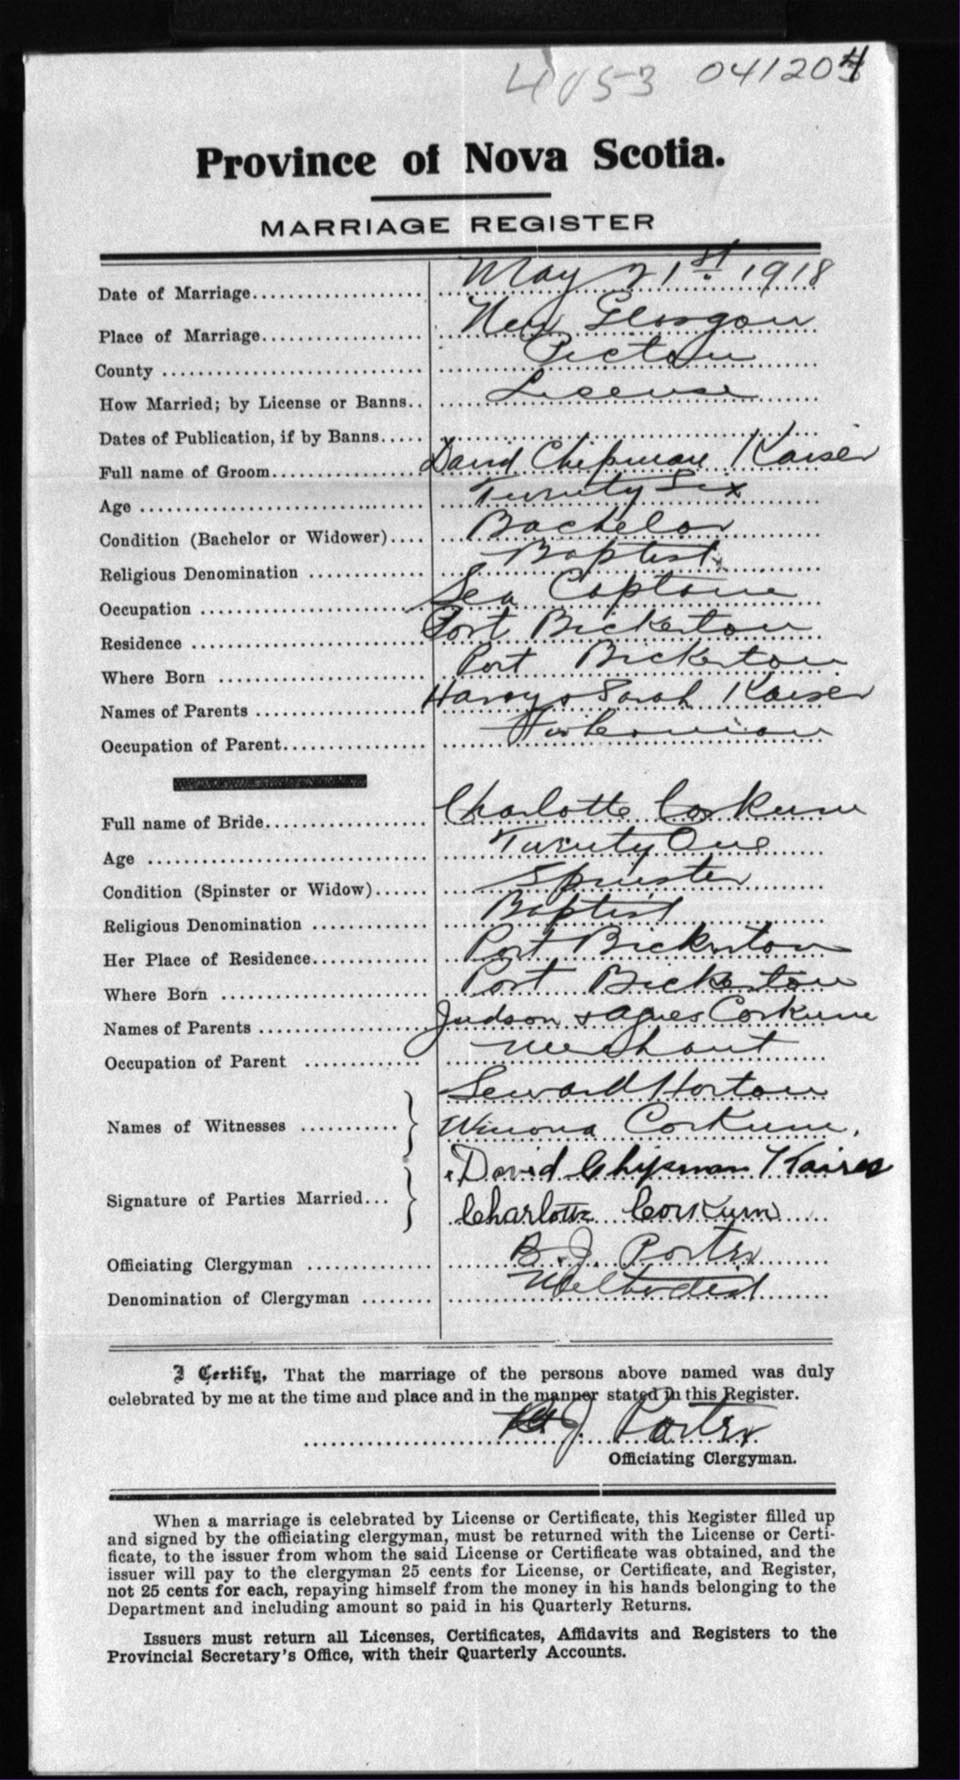 4053 041204
Province of Nova Scotia.
MARRIAGE REGISTER
Date of Marriage.................... May 21st 1918
Place of Marriage................... New Glasgow
County ............................ Pictou
How Married; by License or Banns.. License
Dates of Publication, if by Banns.....
Full name of Groom................. David Chipman Kaiser
Age ............................... Twenty Six
Condition (Bachelor or Widower).... Bachelor
Religious Denomination ............ Baptist
Occupation ........................ Sea Captain
Residence ......................... Port Bickerton
Where Born ....................... Port Bickerton
Names of Parents .................. Harry & Sarah Kaiser
Occupation of Parent................ Fisherman
Full name of Bride.................. Charlotte Corkum
Age ............................... Twenty One
Condition (Spinster or Widow)...... Spinster
Religious Denomination ............ Baptist
Her Place of Residence............. Port Bickerton
Where Born ....................... Port Bickerton
Names of Parents .................. Judson & Agnes Corkum
Occupation of Parent ............. Merchant
Seward Horton
Names of Witnesses ...........
Winona Corkum,
David Chipman Kaiser
Signature of Parties Married...
Charlotte Corkum
Officiating Clergyman ............. B. J. Porter
Denomination of Clergyman ........ Methodist
I Certify, That the marriage of the persons above named was duly
celebrated by me at the time and place and in the manner stated in this Register.
J. Porter
Officiating Clergyman.
When a marriage is celebrated by License or Certificate, this Register filled up
and signed by the officiating clergyman, must be returned with the License or Certi-
ficate, to the issuer from whom the said License or Certificate was obtained, and the
issuer will pay to the clergyman 25 cents for License, or Certificate, and Register,
not 25 cents for each, repaying himself from the money in his hands belonging to the
Department and including amount so paid in his Quarterly Returns.
Issuers must return all Licenses, Certificates, Affidavits and Registers to the
Provincial Secretary's Office, with their Quarterly Accounts.